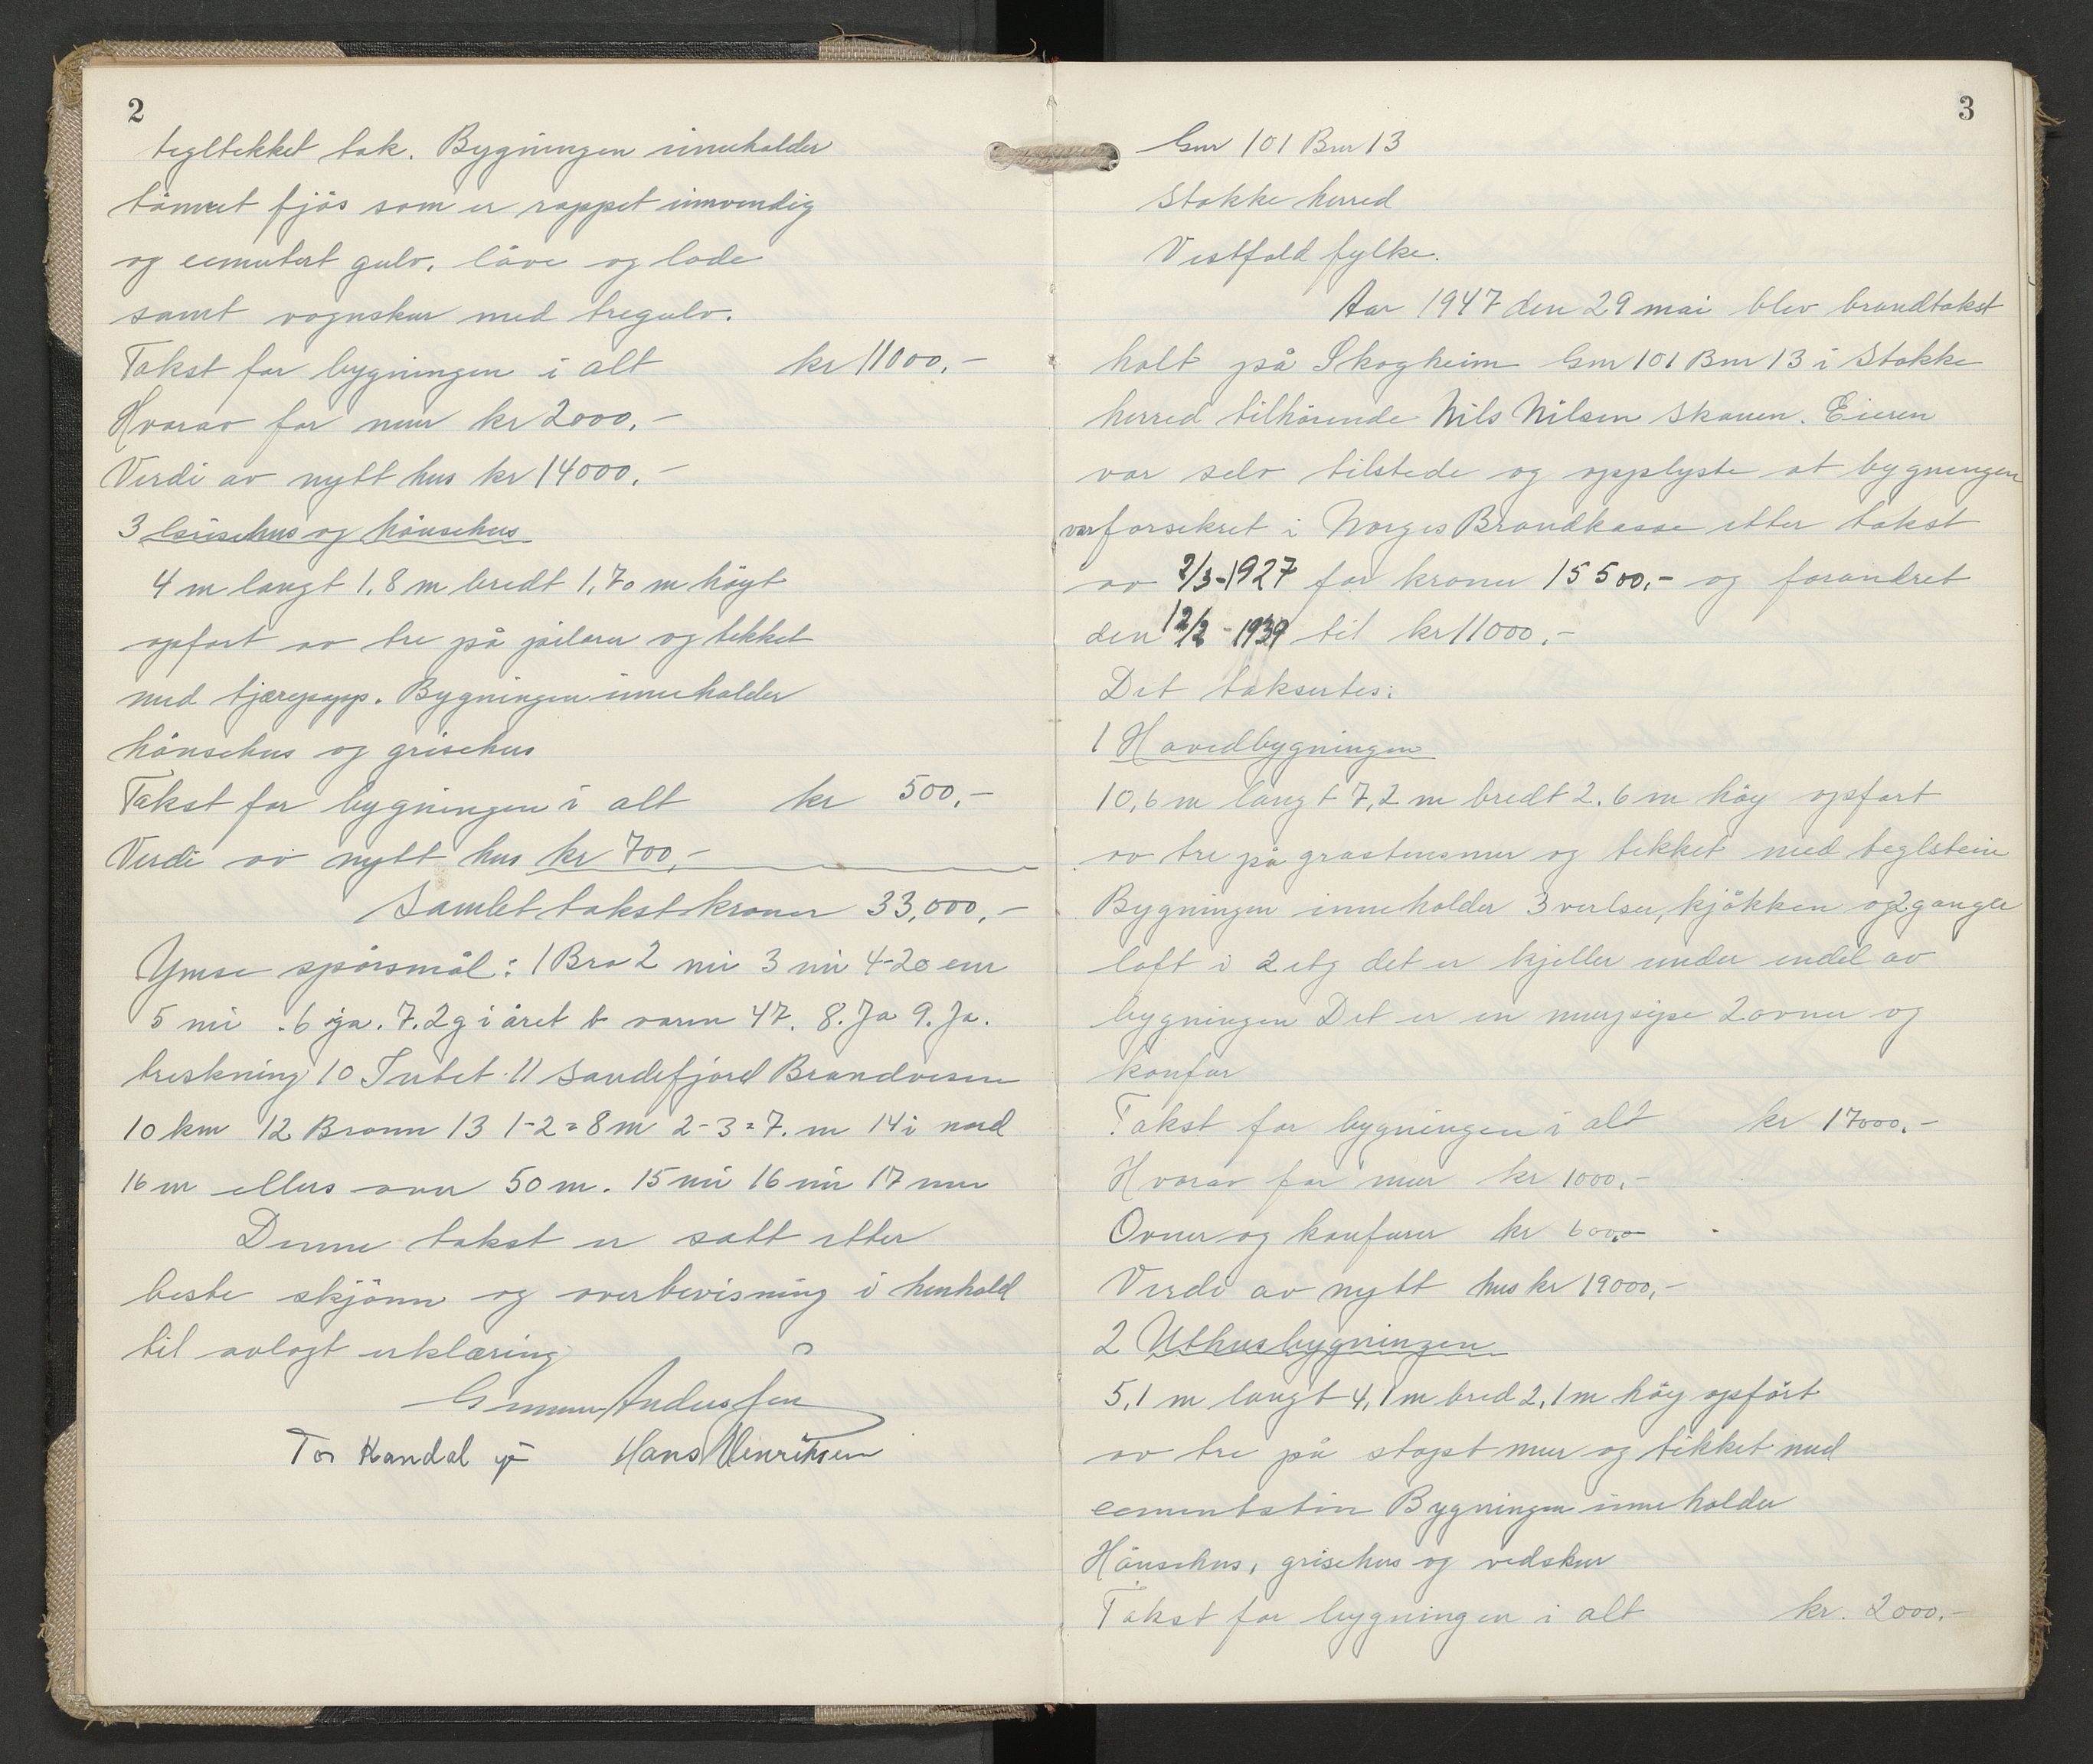 2
tegltekket tak. Bygningen inneholder
tömret fjös som er rappet innvendig
og cementert gulv, låve og lade
samt vognskur med tregulv.
Takst for bygningen i alt kr 11000.-
Hvorav for mur kr 2000.-
Verdi av nytt hus kr 14000.-
3 Grisehus og hönsehus
4 m langt 1,8 m bredt 1,70 m höyt
opfört av tre på pilarer og tekket
med tjærepapp. Bygningen inneholder
hönsehus og grisehus
Takst for bygningen i alt kr 500.-
Verdi av nytt hus kr 700.-
Samlet takst kroner 33,000.-
Ymse spörsmål: 1 Bra 2 nei 3 nei 4-20 cm
5 nei . 6 ja. 7. 2 g i året b varen 47. 8. Ja 9. Ja.
treskning 10 Intet 11 Sandefjord Brandvesen
10 km 12 Brønn 13 1-2 = 8 m 2-3 = 7. m 14 i nord
16 m ellers over 50 m. 15 nei 16 nei 17 nei
Denne takst er satt etter
beste skjönn og overbevisning i henhold
til avlagt erklæring
Gunnar Anderssen
Tor Kandal Hans Henriksen
3
Gnr 101 Bnr 13
Stokke herred
Vestfold fylke.
Aar 1947 den 29 mai blev brandtakst
holt på Skogheim Gnr 101 Bnr 13 i Stokke
herred tilhörende Nils Nilsen Skauen. Eieren
var selv tilstede og opplyste at bygningen
var forsekret i Norges Brandkasse etter takst
av 2/3-1927 for kroner 15500.- og forandret
den 12/2-1939 til kr 11000.-
Det taksertes:
1 Hovedbygningen
10,6 m langt 7,2 m bredt 2.6 m höy opfört
av tre på grastensmur og tekket med teglstein
Bygningen inneholder 3 verlser, kjökken og 2 ganger
loft i 2 etg det er kjeller under endel av
bygningen Det er en murpipe 2 ovner og
konfur
Takst for bygningen i alt kr 17000.-
Hvorav for mur kr 1000.-
Ovner og konfurer kr 600,0
Verdi av nytt hus kr 19000,-
2 Uthusbygningen
5,1 m langt 4,1 m bred 2,1 m höy opfört
av tre på støpt mur og tekket med
cementstein Bygningen inneholder
Hönsehus, grisehus og vedskur
Takst for bygningen i alt kr. 2000.-